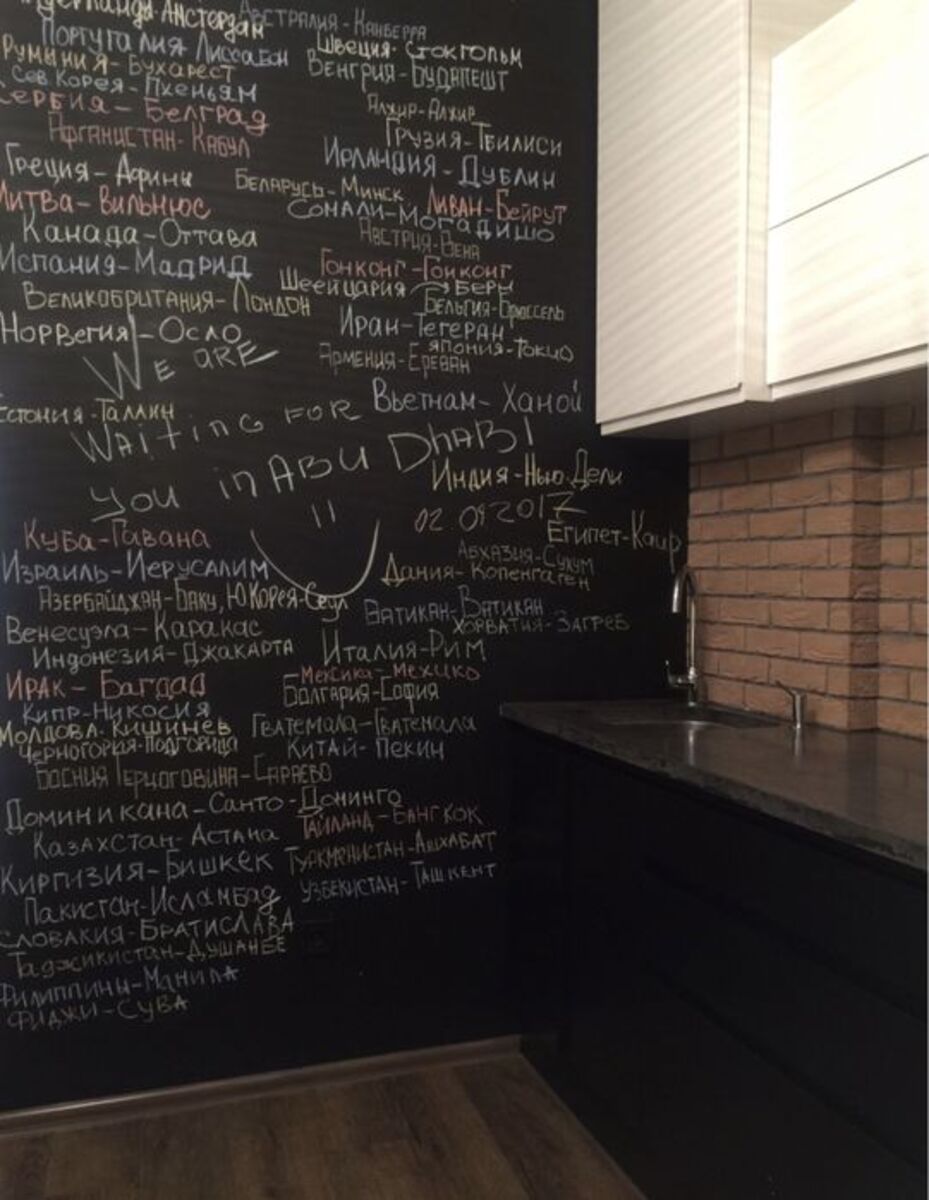 Амстердан Австралия-Канберра
Португалия Лиссабон Швеция-Стокгольм
Румыния-Бухарест Венгрия-Будапешт
Сев Корея-Пхеньям
Сербия-Белград Алжир-Алжир
Афганистан-Кабул Грузия-Тбилиси
Греция-Афины Ирландия-Дублин
Беларусь-Минск Ливан-Бейрут
Литва-Вильнюс Сомали-Могадишо
Канада-Оттава Австрия-Вена
Испания-Мадрид Гонконг-Гонконг
Швейцария Берн
Великобритания-Лондон Бельгия-Брюссель
Норвегия-Осло Иран-Тегеран
Япония-Токио
We are Армения-Ереван
Эстония-Таллин Вьетнам-Ханой
Waiting for
you in Abu Dhabi Индия-Нью-Дели
02.09 2017
Куба-Гавана Египет-Каир
Израиль-Иерусалим Абхазия-Сухум
Дания-Копенгаген
Азербайджан-Баку, Ю.Корея-Сеул
Ватикан-Ватикан
Венесуэла-Каракас Хорватия-Загреб
Индонезия-Джакарта Италия-Рим
Мексика-Мехико
Ирак-Багдад Болгария-София
Кипр-Никосия
Молдова-Кишинев Гватемала-Гватемала
Черногория-Подгорица Китай-Пекин
Босния Герцоговина-Сараево
Доминикана-Санто-Доминго
Казахстан-Астана Тайланд-Бангкок
Киргизия-Бишкек Туркменистан-Ашхабат
Пакистан-Исламбад Узбекистан-Ташкент
Словакия-Братислава
Таджикистан-Душанбе
Филиппины-Манила
Фиджи-Сува